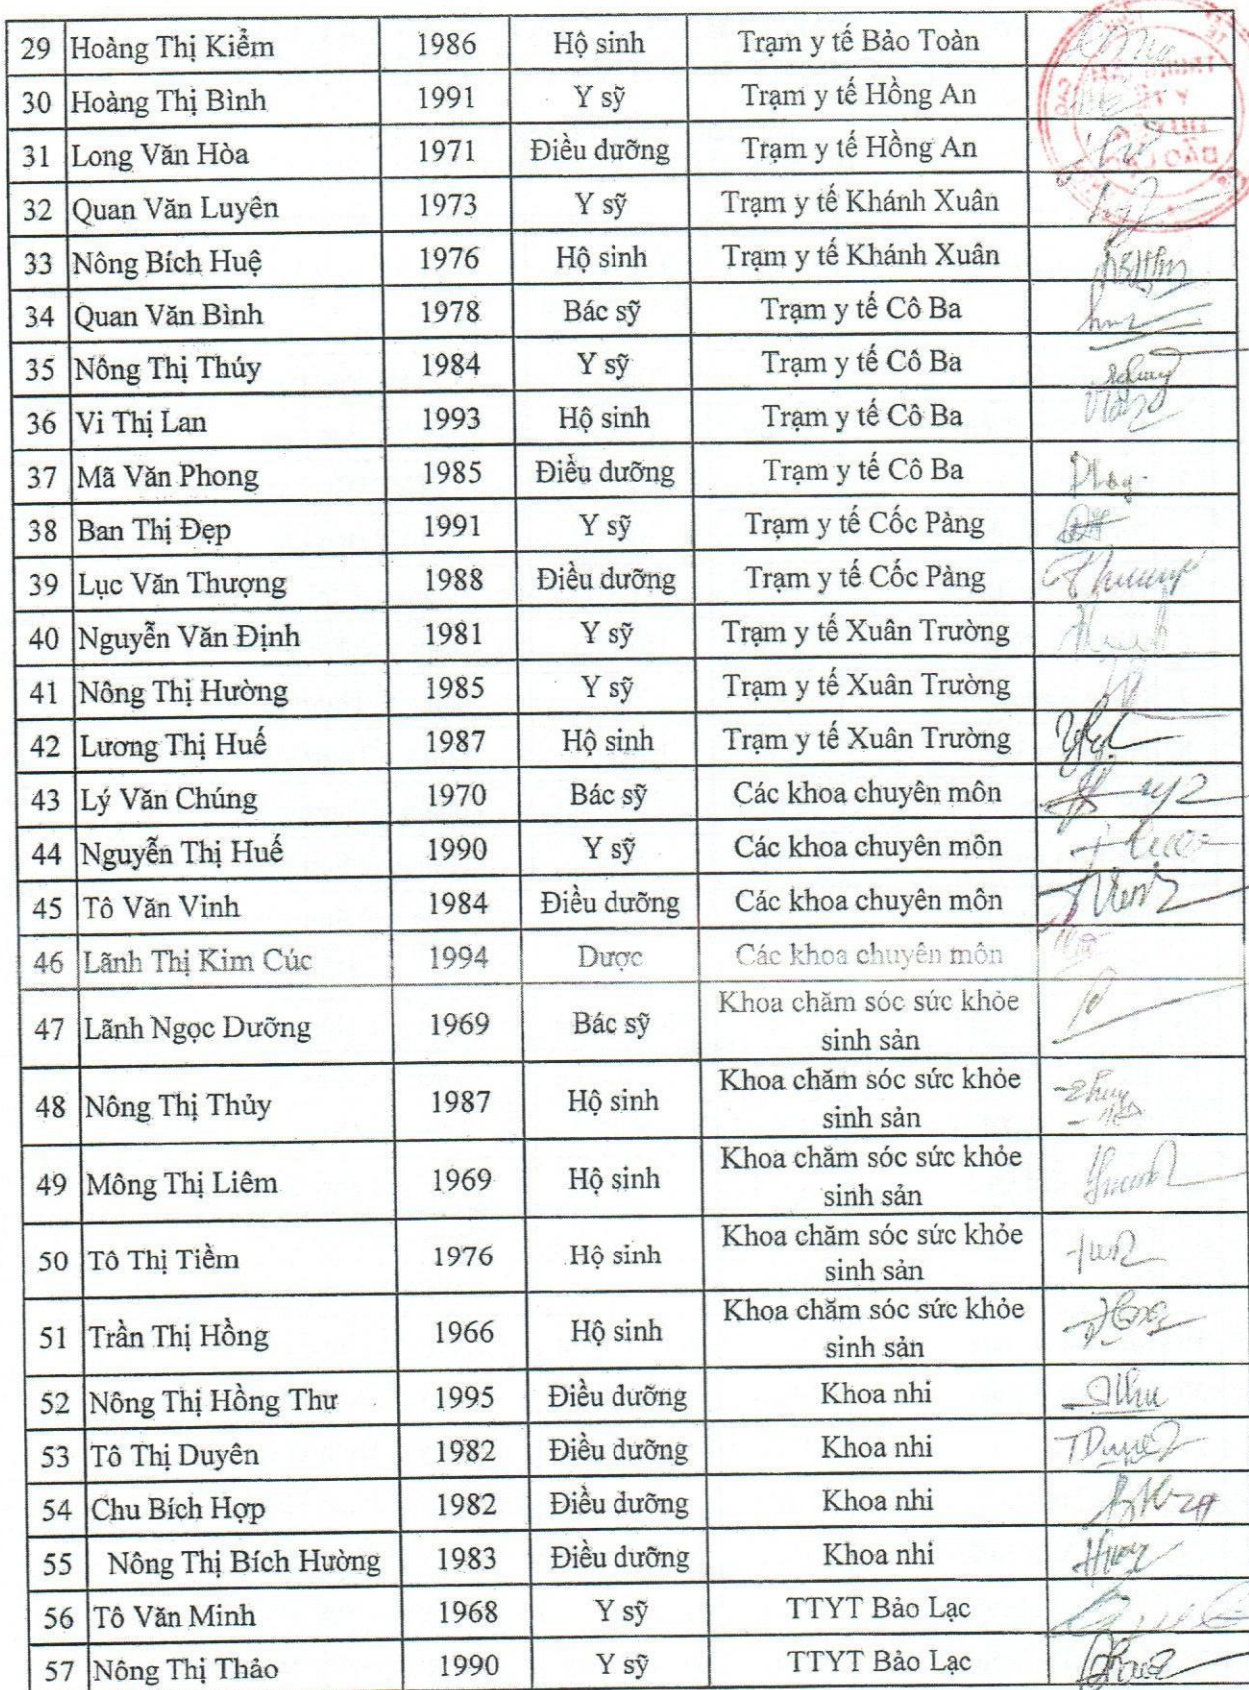 29 Hoàng Thị Kiểm 1986 Hộ sinh Trạm y tế Bảo Toàn
30 Hoàng Thị Bình 1991 Y sỹ Trạm y tế Hồng An
31 Long Văn Hòa 1971 Điều dưỡng Trạm y tế Hồng An
32 Quan Văn Luyên 1973 Y sỹ Trạm y tế Khánh Xuân
33 Nông Bích Huệ 1976 Hộ sinh Trạm y tế Khánh Xuân
34 Quan Văn Bình 1978 Bác sỹ Trạm y tế Cô Ba
35 Nông Thị Thúy 1984 Y sỹ Trạm y tế Cô Ba
36 Vi Thị Lan 1993 Hộ sinh Trạm y tế Cô Ba
37 Mã Văn Phong 1985 Điều dưỡng Trạm y tế Cô Ba
38 Ban Thị Đẹp 1991 Y sỹ Trạm y tế Cốc Pàng
39 Lục Văn Thượng 1988 Điều dưỡng Trạm y tế Cốc Pàng
40 Nguyễn Văn Định 1981 Y sỹ Trạm y tế Xuân Trường
41 Nông Thị Hường 1985 Y sỹ Trạm y tế Xuân Trường
42 Lương Thị Huế 1987 Hộ sinh Trạm y tế Xuân Trường
43 Lý Văn Chúng 1970 Bác sỹ Các khoa chuyên môn
44 Nguyễn Thị Huế 1990 Y sỹ Các khoa chuyên môn
45 Tô Văn Vinh 1984 Điều dưỡng Các khoa chuyên môn
46 Lãnh Thị Kim Cúc 1994 Dược Các khoa chuyên môn
47 Lãnh Ngọc Dưỡng 1969 Bác sỹ Khoa chăm sóc sức khỏe
sinh sản
48 Nông Thị Thủy 1987 Hộ sinh Khoa chăm sóc sức khỏe
sinh sản
49 Mông Thị Liêm 1969 Hộ sinh Khoa chăm sóc sức khỏe
sinh sản
50 Tô Thị Tiềm 1976 Hộ sinh Khoa chăm sóc sức khỏe
sinh sản
51 Trần Thị Hồng 1966 Hộ sinh Khoa chăm sóc sức khỏe
sinh sản
52 Nông Thị Hồng Thư 1995 Điều dưỡng Khoa nhi
53 Tô Thị Duyên 1982 Điều dưỡng Khoa nhi
54 Chu Bích Hợp 1982 Điều dưỡng Khoa nhi
55 Nông Thị Bích Hường 1983 Điều dưỡng Khoa nhi
56 Tô Văn Minh 1968 Y sỹ TTYT Bảo Lạc
57 Nông Thị Thảo 1990 Y sỹ TTYT Bảo Lạc